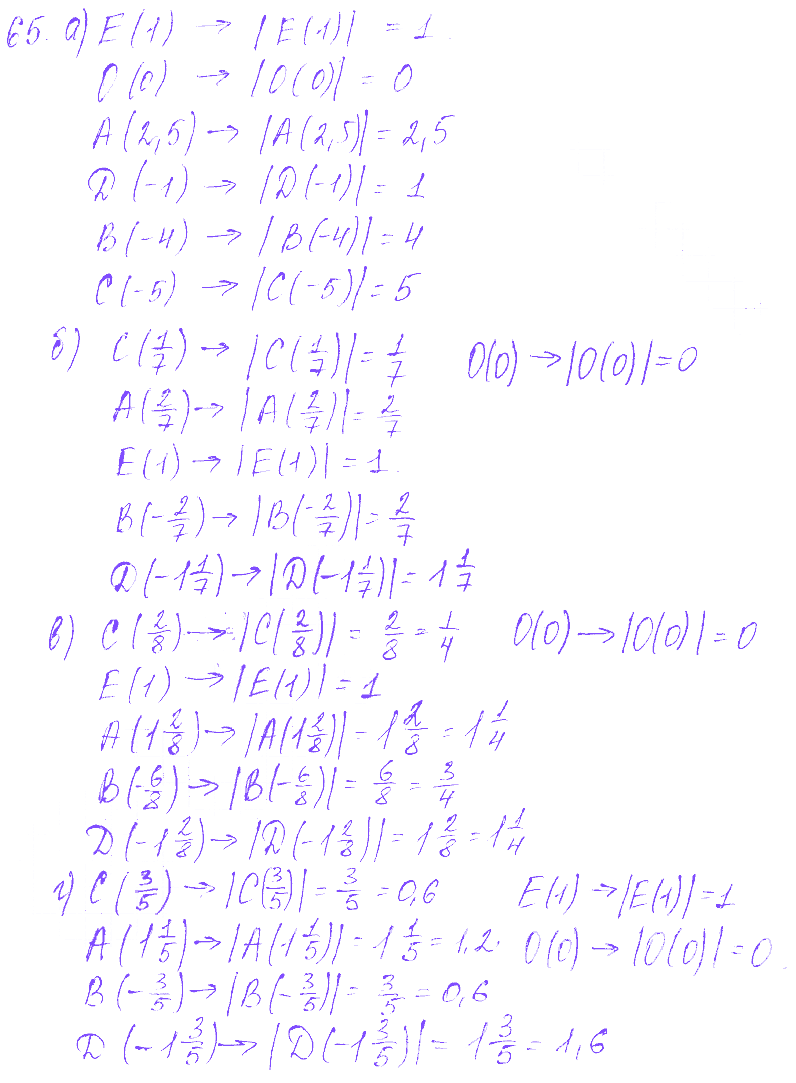 65. а) E(1) → |E(1)| = 1.
O(0) → |O(0)| = 0
A(2,5) → |A(2,5)| = 2,5
D(-1) → |D(-1)| = 1
B(-4) → |B(-4)| = 4
C(-5) → |C(-5)| = 5
б) C(1/7) → |C(1/7)| = 1/7 O(0) → |O(0)| = 0
A(2/7) → |A(2/7)| = 2/7
E(1) → |E(1)| = 1.
B(-2/7) → |B(-2/7)| = 2/7
D(-1 1/7) → |D(-1 1/7)| = 1 1/7
в) C(2/8) → |C(2/8)| = 2/8 = 1/4 O(0) → |O(0)| = 0
E(1) → |E(1)| = 1
A(1 2/8) → |A(1 2/8)| = 1 2/8 = 1 1/4
B(-6/8) → |B(-6/8)| = 6/8 = 3/4
D(-1 2/8) → |D(-1 2/8)| = 1 2/8 = 1 1/4
г) C(3/5) → |C(3/5)| = 3/5 = 0,6 E(1) → |E(1)| = 1
A(1 1/5) → |A(1 1/5)| = 1 1/5 = 1,2. O(0) → |O(0)| = 0.
B(-3/5) → |B(-3/5)| = 3/5 = 0,6
D(-1 3/5) → |D(-1 3/5)| = 1 3/5 = 1,6